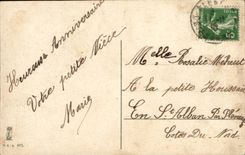 Heureuse Anniversaire
Votre petite Nièce
Marie
Melle Rosalie
A la petite Houssaie
En St Alban Par
Côtes du Nord